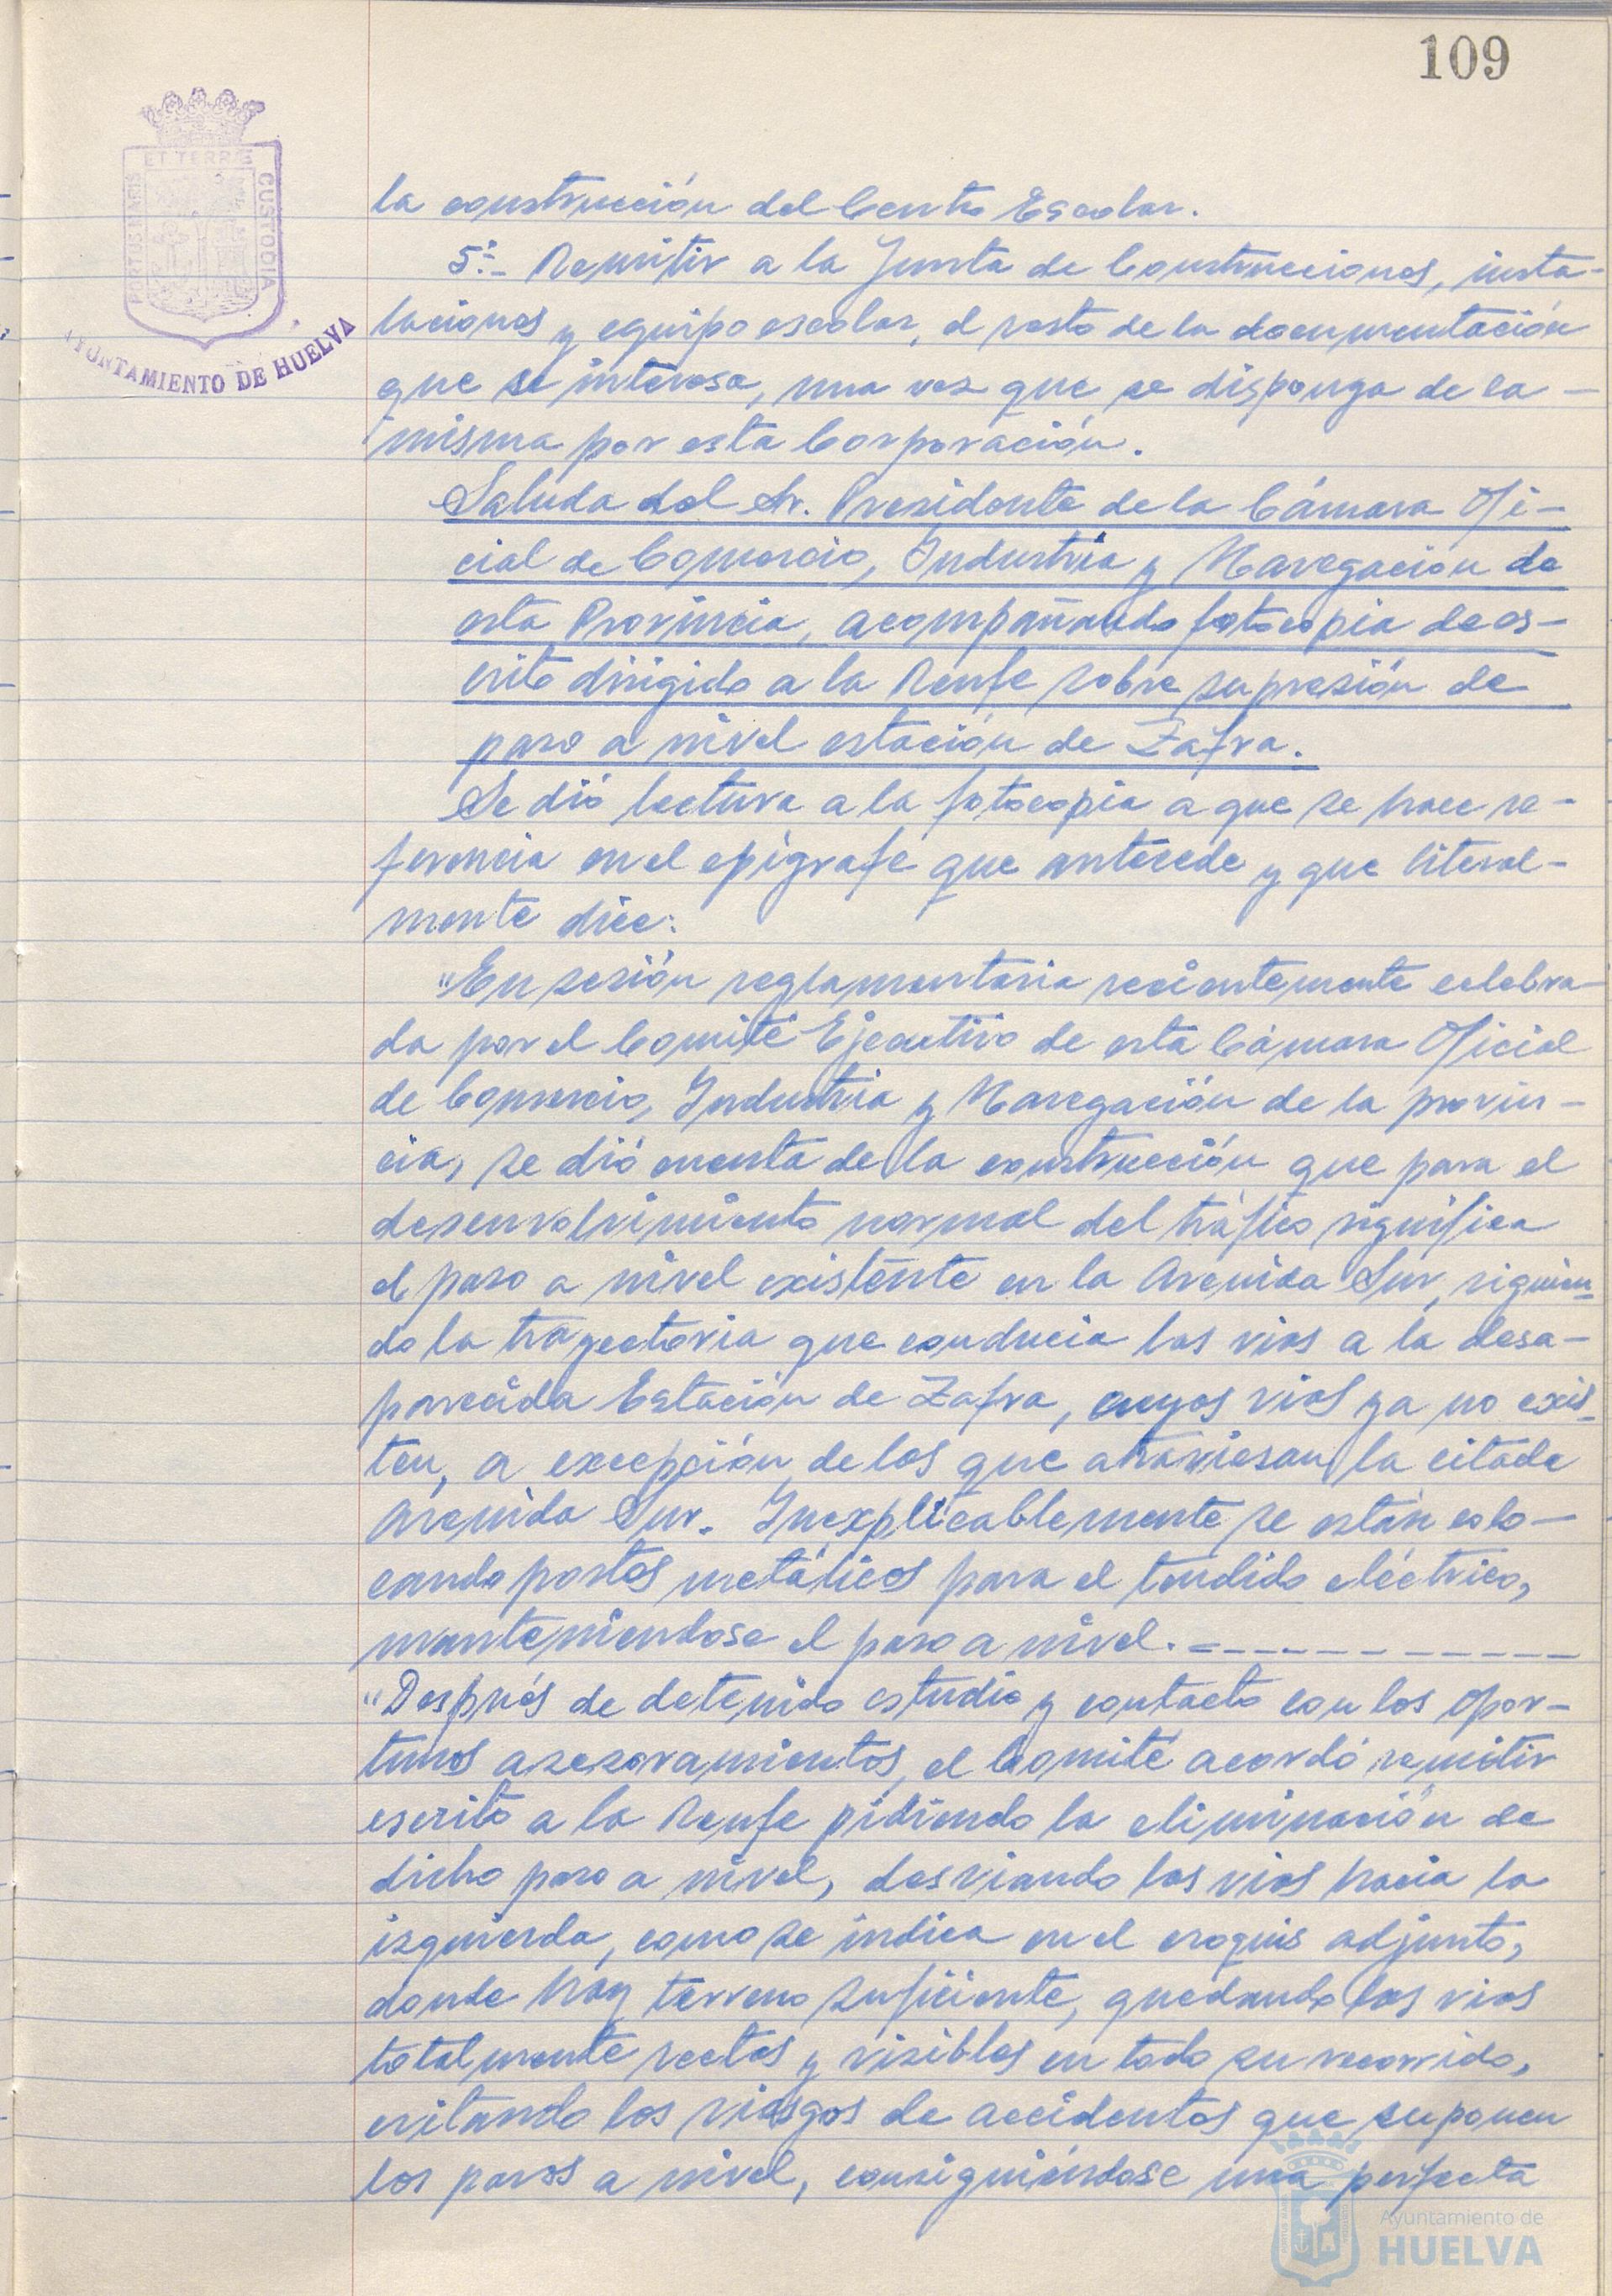 109
PORTUS MARIS
ET TERRÆ
CUSTODIA
AYUNTAMIENTO DE HUELVA
la construcción del Centro Escolar.
5º.- Remitir a la Junta de Construcciones, insta-
laciones y equipo escolar, el resto de la documentación
que se interesa, una vez que se disponga de la -
misma por esta Corporación.
Saluda del Sr. Presidente de la Cámara Ofi-
cial de Comercio, Industria y Navegación de
esta Provincia, acompañando fotocopia de es-
crito dirigido a la Renfe sobre supresión de
paso a nivel estación de Zafra.
Se dió lectura a la fotocopia a que se hace re-
ferencia en el epígrafe que antecede y que literal-
mente dice:
"En sesión reglamentaria recientemente celebra-
da por el Comité Ejecutivo de esta Cámara Oficial
de Comercio, Industria y Navegación de la provin-
cia, se dió cuenta de la construcción que para el
desenvolvimiento normal del tráfico significa
el paso a nivel existente en la Avenida Sur, siguien-
do la trayectoria que conducia las vias a la desa-
parecida Estación de Zafra, cuyas vias ya no exis-
ten, a excepción de las que atraviesan la citada
Avenida Sur. Inexplicablemente se están colo-
cando postes metálicos para el tendido eléctrico,
manteniendose el paso a nivel.- - - - - - - - - -
"Después de detenido estudio y contacto con los opor-
tunos asesoramientos, el Comité acordó remitir
escrito a la Renfe pidiendo la eliminación de
dicho paso a nivel, desviando las vias hacia la
izquierda, como se indica en el croquis adjunto,
donde hay terreno suficiente, quedando las vias
totalmente rectas y visibles en todo su recorrido,
evitando los riesgos de accidentes que suponen
los pasos a nivel, consiguiéndose una perfecta
Ayuntamiento de
HUELVA